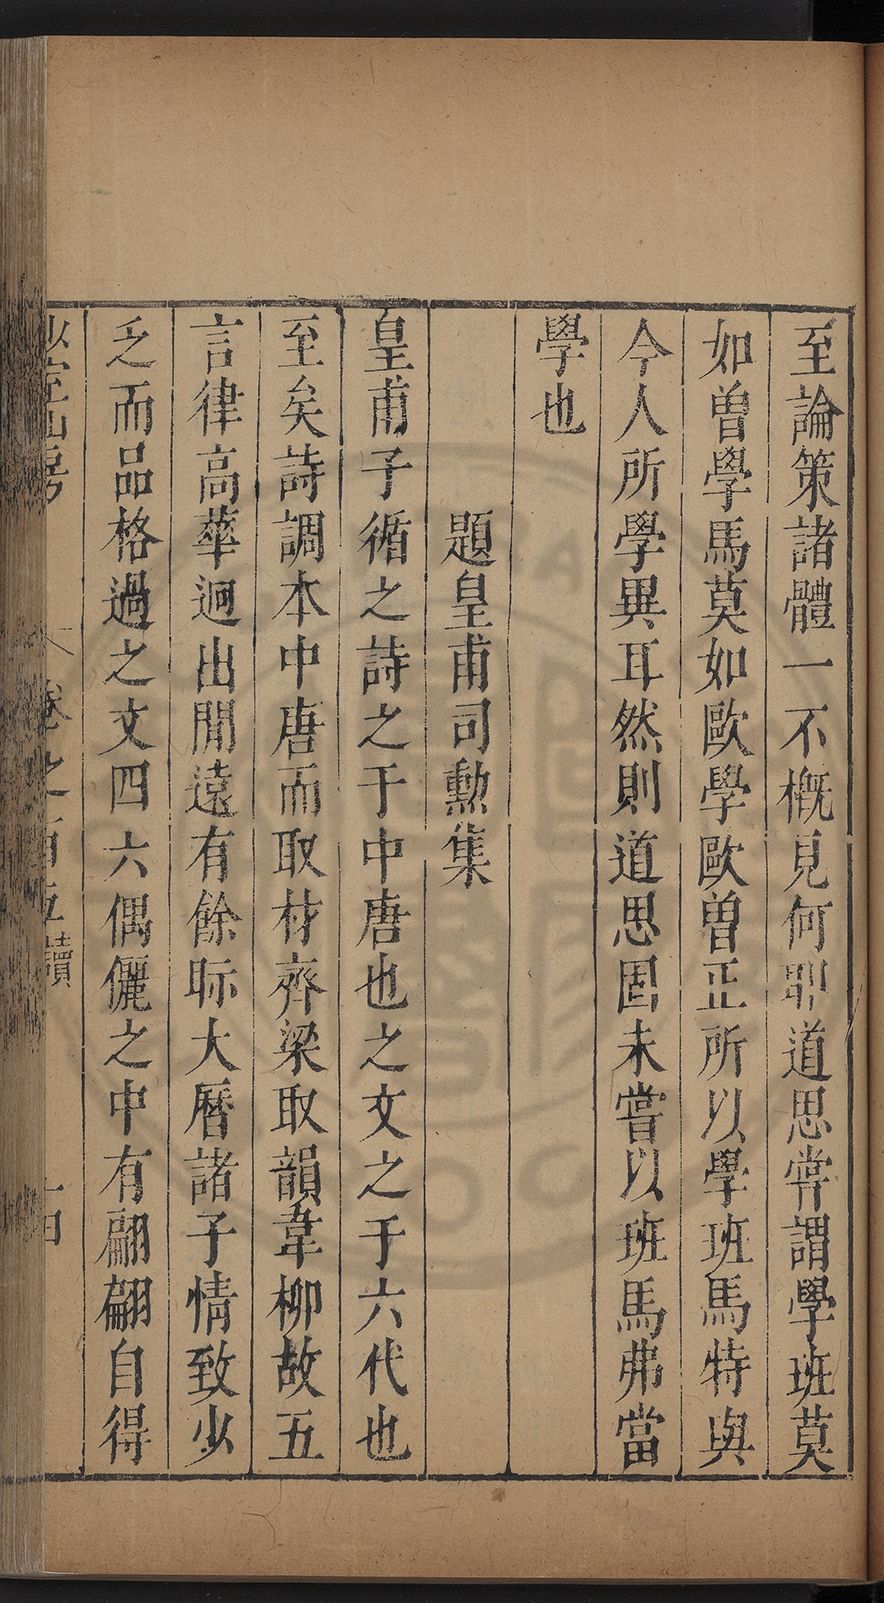 至論策諸體一不概見何耶道思甞謂學班莫
如曾學馬莫如歐學歐曾正所以學班馬特與
今人所學異耳然則道思固未嘗以班馬弗當
學也
題皇甫司勳集
皇甫子循之詩之于中唐也之文之于六代也
至矣詩調本中唐而取材齊梁取韻韋柳故五
言律高華迥出閒遠有餘眎大曆諸子情致少
乏而品格過之文四六偶儷之中有翩翩自得
少室山房 卷之百五 牘 十四